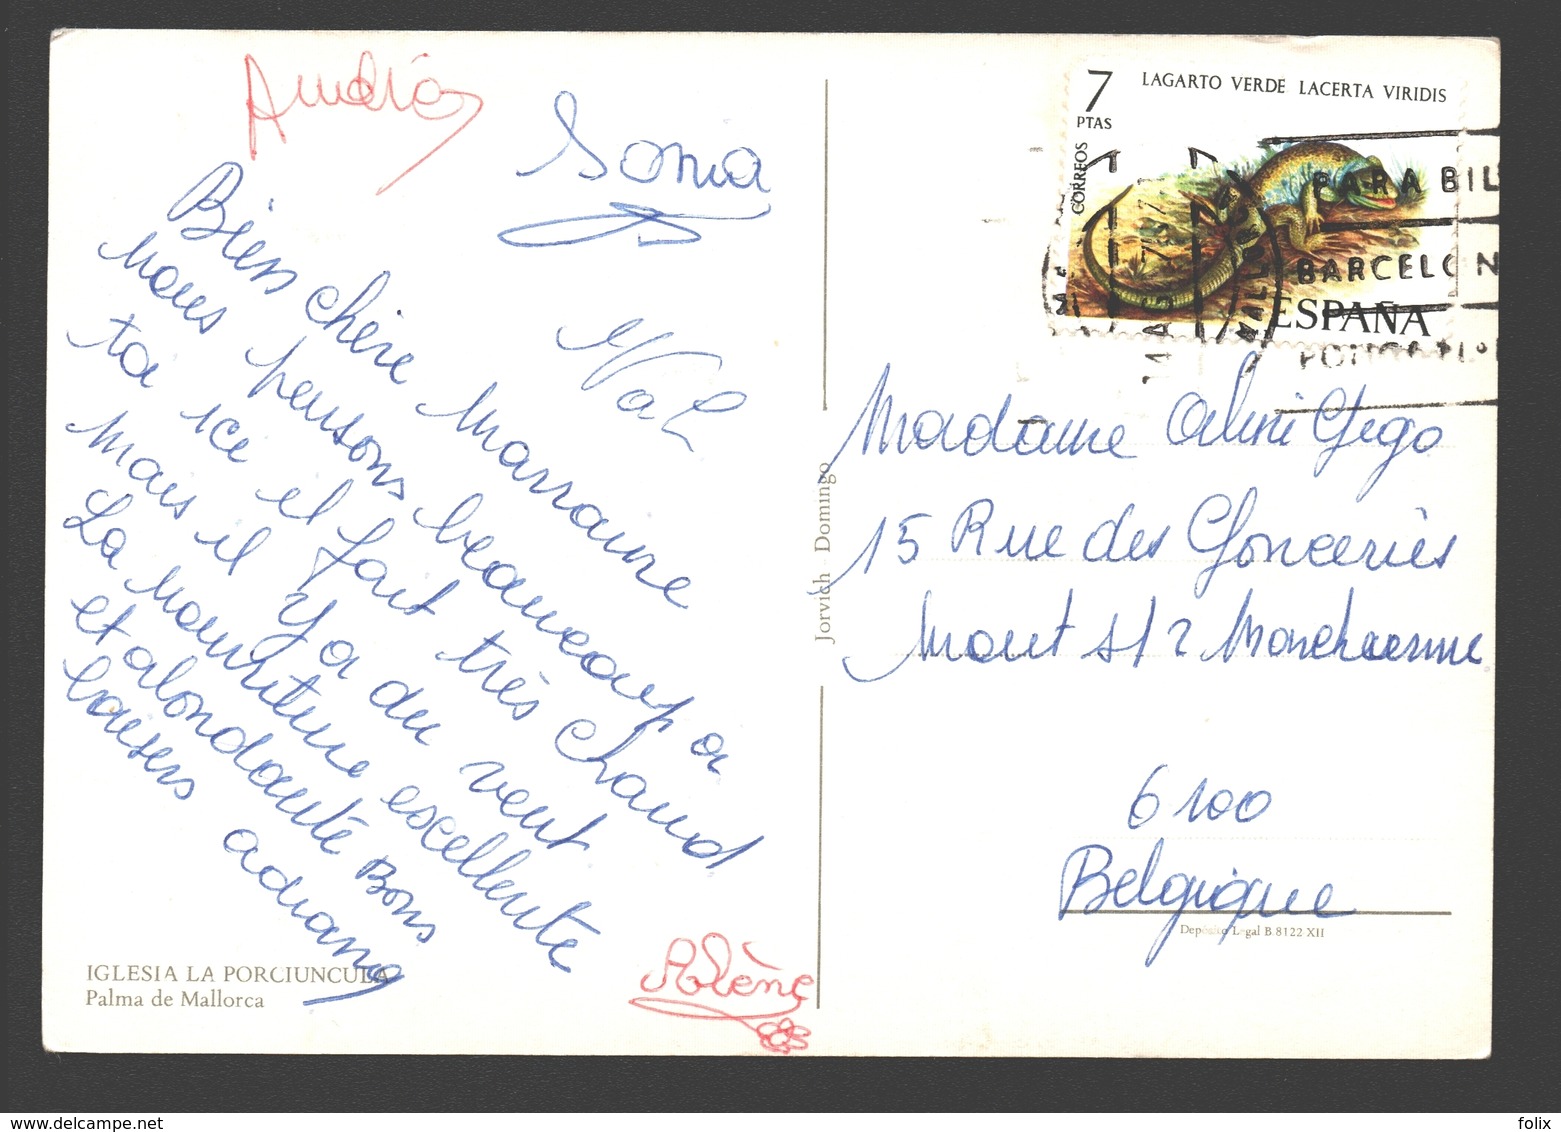 Sonia
Bien chère Marraine
Nous pensons beaucoup a
ta ice et fait très chaud
mais il y a du vent
La nourriture excellente
et abondante Bons
baisers adiana
Nat
Solène
IGLESIA LA PORCIUNCULA
Palma de Mallorca
Jorvich - Domingo
7
PTAS
CORREOS
LAGARTO VERDE LACERTA VIRIDIS
ESPAÑA
PARA BIL
BARCELON
Madame
15 Rue des
Mont s/
6100
Belgique
Depósito Legal B 8122 XII
delcampe.net
felix